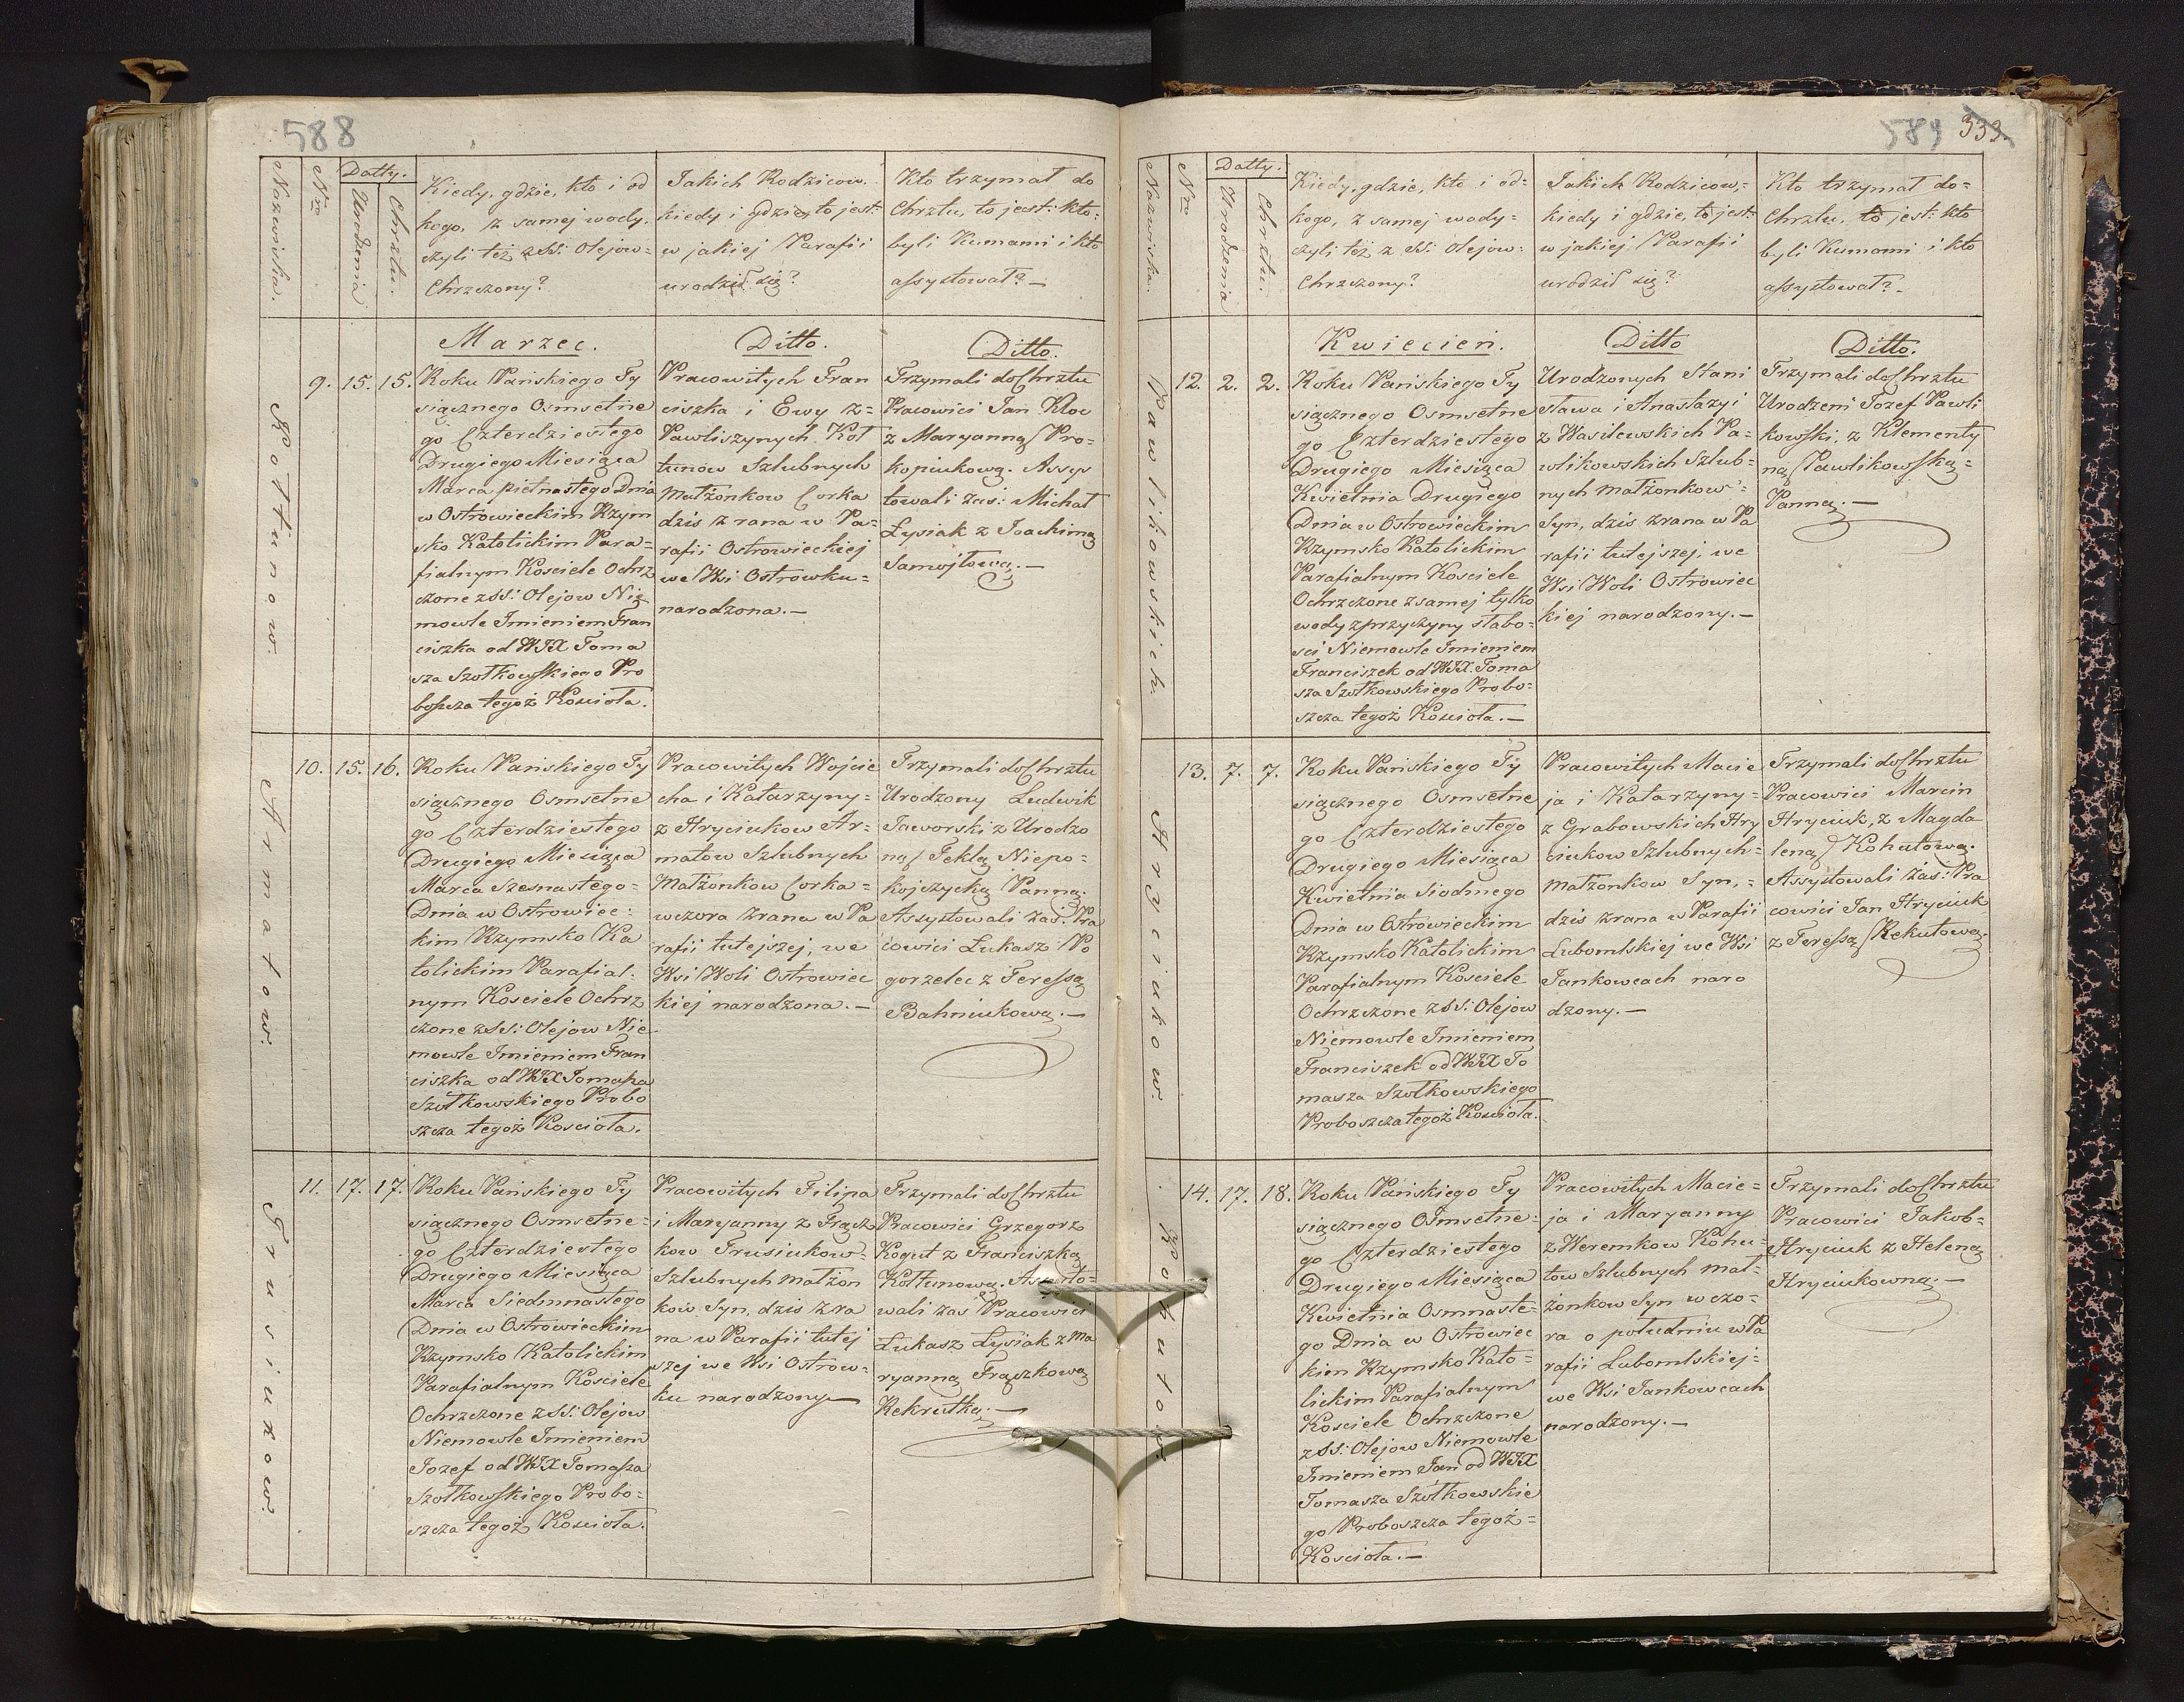 588
Nazwiska.
Nro
Datty.
Urodzenia
Chrztu.
Kiedy, gdzie, kto i od
kogo, z samej wody,
czyli też z SS: Olejow=
Chrzczony?
Jakich Rodzicow.
kiedy i gdzie, to jest:
w jakiej Parafii
urodził się?
Kto trzymał do
Chrztu, to jest: kto=
byli Kumami i kto
assystował? _
Marzec.
Ditto.
Ditto.
Kołtunow.
9. 15. 15.
Roku Pańskiego Ty
siącznego Osmsetne
go Czterdziestego
Drugiego Miesiąca
Marca pietnastego Dnia
w Ostrowieckim Rzym
sko Katolickim Para=
fialnym Kościele Ochrz
czone z SS: Olejow Nie
mowle Imieniem Fran
ciszka od WJX Toma
sza Szołkowskiego Pro
boszcza tegoż Kościoła.
Pracowitych Fran
ciszka i Ewy z=
Pawliszynych Koł
tunow Szlubnych
Małżonkow Corka
dziś z rana w Pa=
rafii Ostrowieckiej
we Wsi Ostrowku=
narodzona. —
Trzymali do Chrztu
Pracowici Jan Kloc
z Maryanną Pro=
kopiukową. Assys
towali zaś: Michał
Łysiak z Joachimą
Samójłową. —
Armatow.
10. 15. 16.
Roku Pańskiego Ty
siącznego Osmsetne
go Czterdziestego
Drugiego Miesiąca
Marca Szesnastego=
Dnia w Ostrowiec:
kim Rzymsko Ka
tolickim Parafial:
nym Kościele Ochrz
czone z SS: Olejow Nie
mowle Imieniem Fran
ciszka od WJX Tomasza
Szołkowskiego Probo
szcza tegoż Kościoła.
Pracowitych Wojcie
cha i Katarzyny=
z Hryciukow Ar=
matow Szlubnych
Małżonkow Corka=
wczora z rana w Pa
rafii tutejszej, we
Wsi Woli Ostrowiec
kiej narodzona. —
Trzymali do Chrztu
Urodzony Ludwik
Jaworski z Urodzo
ną Teklą Niepo=
kojczycką Panną.
Assystowali zaś: Pra
cowici Łukasz Po
gorzelec z Teressą
Bahniukową. —
Trusiukow.
11. 17. 17.
Roku Pańskiego Ty
siącznego Osmsetne=
go Czterdziestego
Drugiego Miesiąca
Marca Siedmnastego
Dnia w Ostrowieckim
Rzymsko Katolickim
Parafialnym Kościele
Ochrzczone z SS: Olejow
Niemowle Imieniem
Jozef od WJX Tomasza
Szołkowskiego Probo=
szcza tegoż Kościoła.
Pracowitych Filipa
i Maryanny z Frącz
kow Trusiukow=
Szlubnych małżon
kow Syn, dziś z ra
na w Parafii tutej
szej we Wsi Ostrow=
ku narodzony —
Trzymali do Chrztu
Pracowici Grzegorz
Kogut z Franciszką
Kołtunową. Assysto=
wali zaś Pracowici
Łukasz Łysiak z Ma
ryanną Frączkową
Rekrutką. —
589 333.
Nazwiska.
Nro
Datty.
Urodzenia
Chrztu.
Kiedy, gdzie, kto i od=
kogo, z samej wody=
czyli też z SS: Olejow=
Chrzczony?
Jakich Rodzicow,=
kiedy i gdzie, to jest:
w jakiej Parafii
urodził się?
Kto trzymał do=
Chrztu, to jest: kto
byli Kumami i kto
assystował? _
Kwiecień.
Ditto
Ditto.
Pawlikowskich.
12. 2. 2.
Roku Pańskiego Ty
siącznego Osmsetne
go Czterdziestego
Drugiego Miesiąca
Kwietnia Drugiego
Dnia w Ostrowieckim
Rzymsko Katolickim
Parafialnym Kościele
Ochrzczone z samej tylko
wody z przyczyny słabo=
sci Niemowle Imieniem
Franciszek od WJX. Toma
sza Szołkowskiego Probo=
szcza tegoż Kościoła. —
Urodzonych Stani
sława i Anastazyi
z Wasilewskich Pa=
wlikowskich Szlub=
nych małżonkow=
Syn, dziś z rana w Pa
rafii tutejszej, we
Wsi Woli Ostrowiec
kiej narodzony. —
Trzymali do Chrztu
Urodzeni Jozef Pawli
kowski, z Klementy
ną Pawlikowską=
Panną. —
Hryciukow.
13. 7. 7.
Roku Pańskiego Ty
siącznego Osmsetne
go Czterdziestego
Drugiego Miesiąca
Kwietnia Siodmego
Dnia w Ostrowieckim
Rzymsko Katolickim
Parafialnym Kościele
Ochrzczone z SS: Olejow
Niemowle Imieniem
Franciszek od WJX To
masza Szołkowskiego
Proboszcza tegoż Kościoła.
Pracowitych Macie
ja i Katarzyny=
z Grabowskich Hry
ciukow Szlubnych=
małżonkow Syn,=
dziś z rana w Parafii
Lubomlskiej we Wsi
Jankowcach naro
dzony. —
Trzymali do Chrztu
Pracowici Marcin
Hryciuk, z Magda
leną Kohutową.
Assystowali zaś: Pra
cowici Jan Hryciuk
z Teressą Rekutową.
Kohutow.
14. 17. 18.
Roku Pańskiego Ty
siącznego Osmsetne=
go Czterdziestego
Drugiego Miesiąca
Kwietnia Osmnaste=
go Dnia w Ostrowiec
kim Rzymsko Kato=
lickim Parafialnym
Kościele Ochrzczone
z SS: Olejow Niemowle
Imieniem Jan od WJX
Tomasza Szołkowskie
go Proboszcza tegoż=
Kościoła. —
Pracowitych Macie=
ja i Maryanny
z Weremkow Kohu=
tow Szlubnych mał=
żonkow Syn wczo=
ra o południu w Pa
rafii Lubomlskiej=
we Wsi Jankowcach
narodzony. —
Trzymali do Chrztu
Pracowici Jakob=
Hryciuk z Heleną
Hryciukowną. —